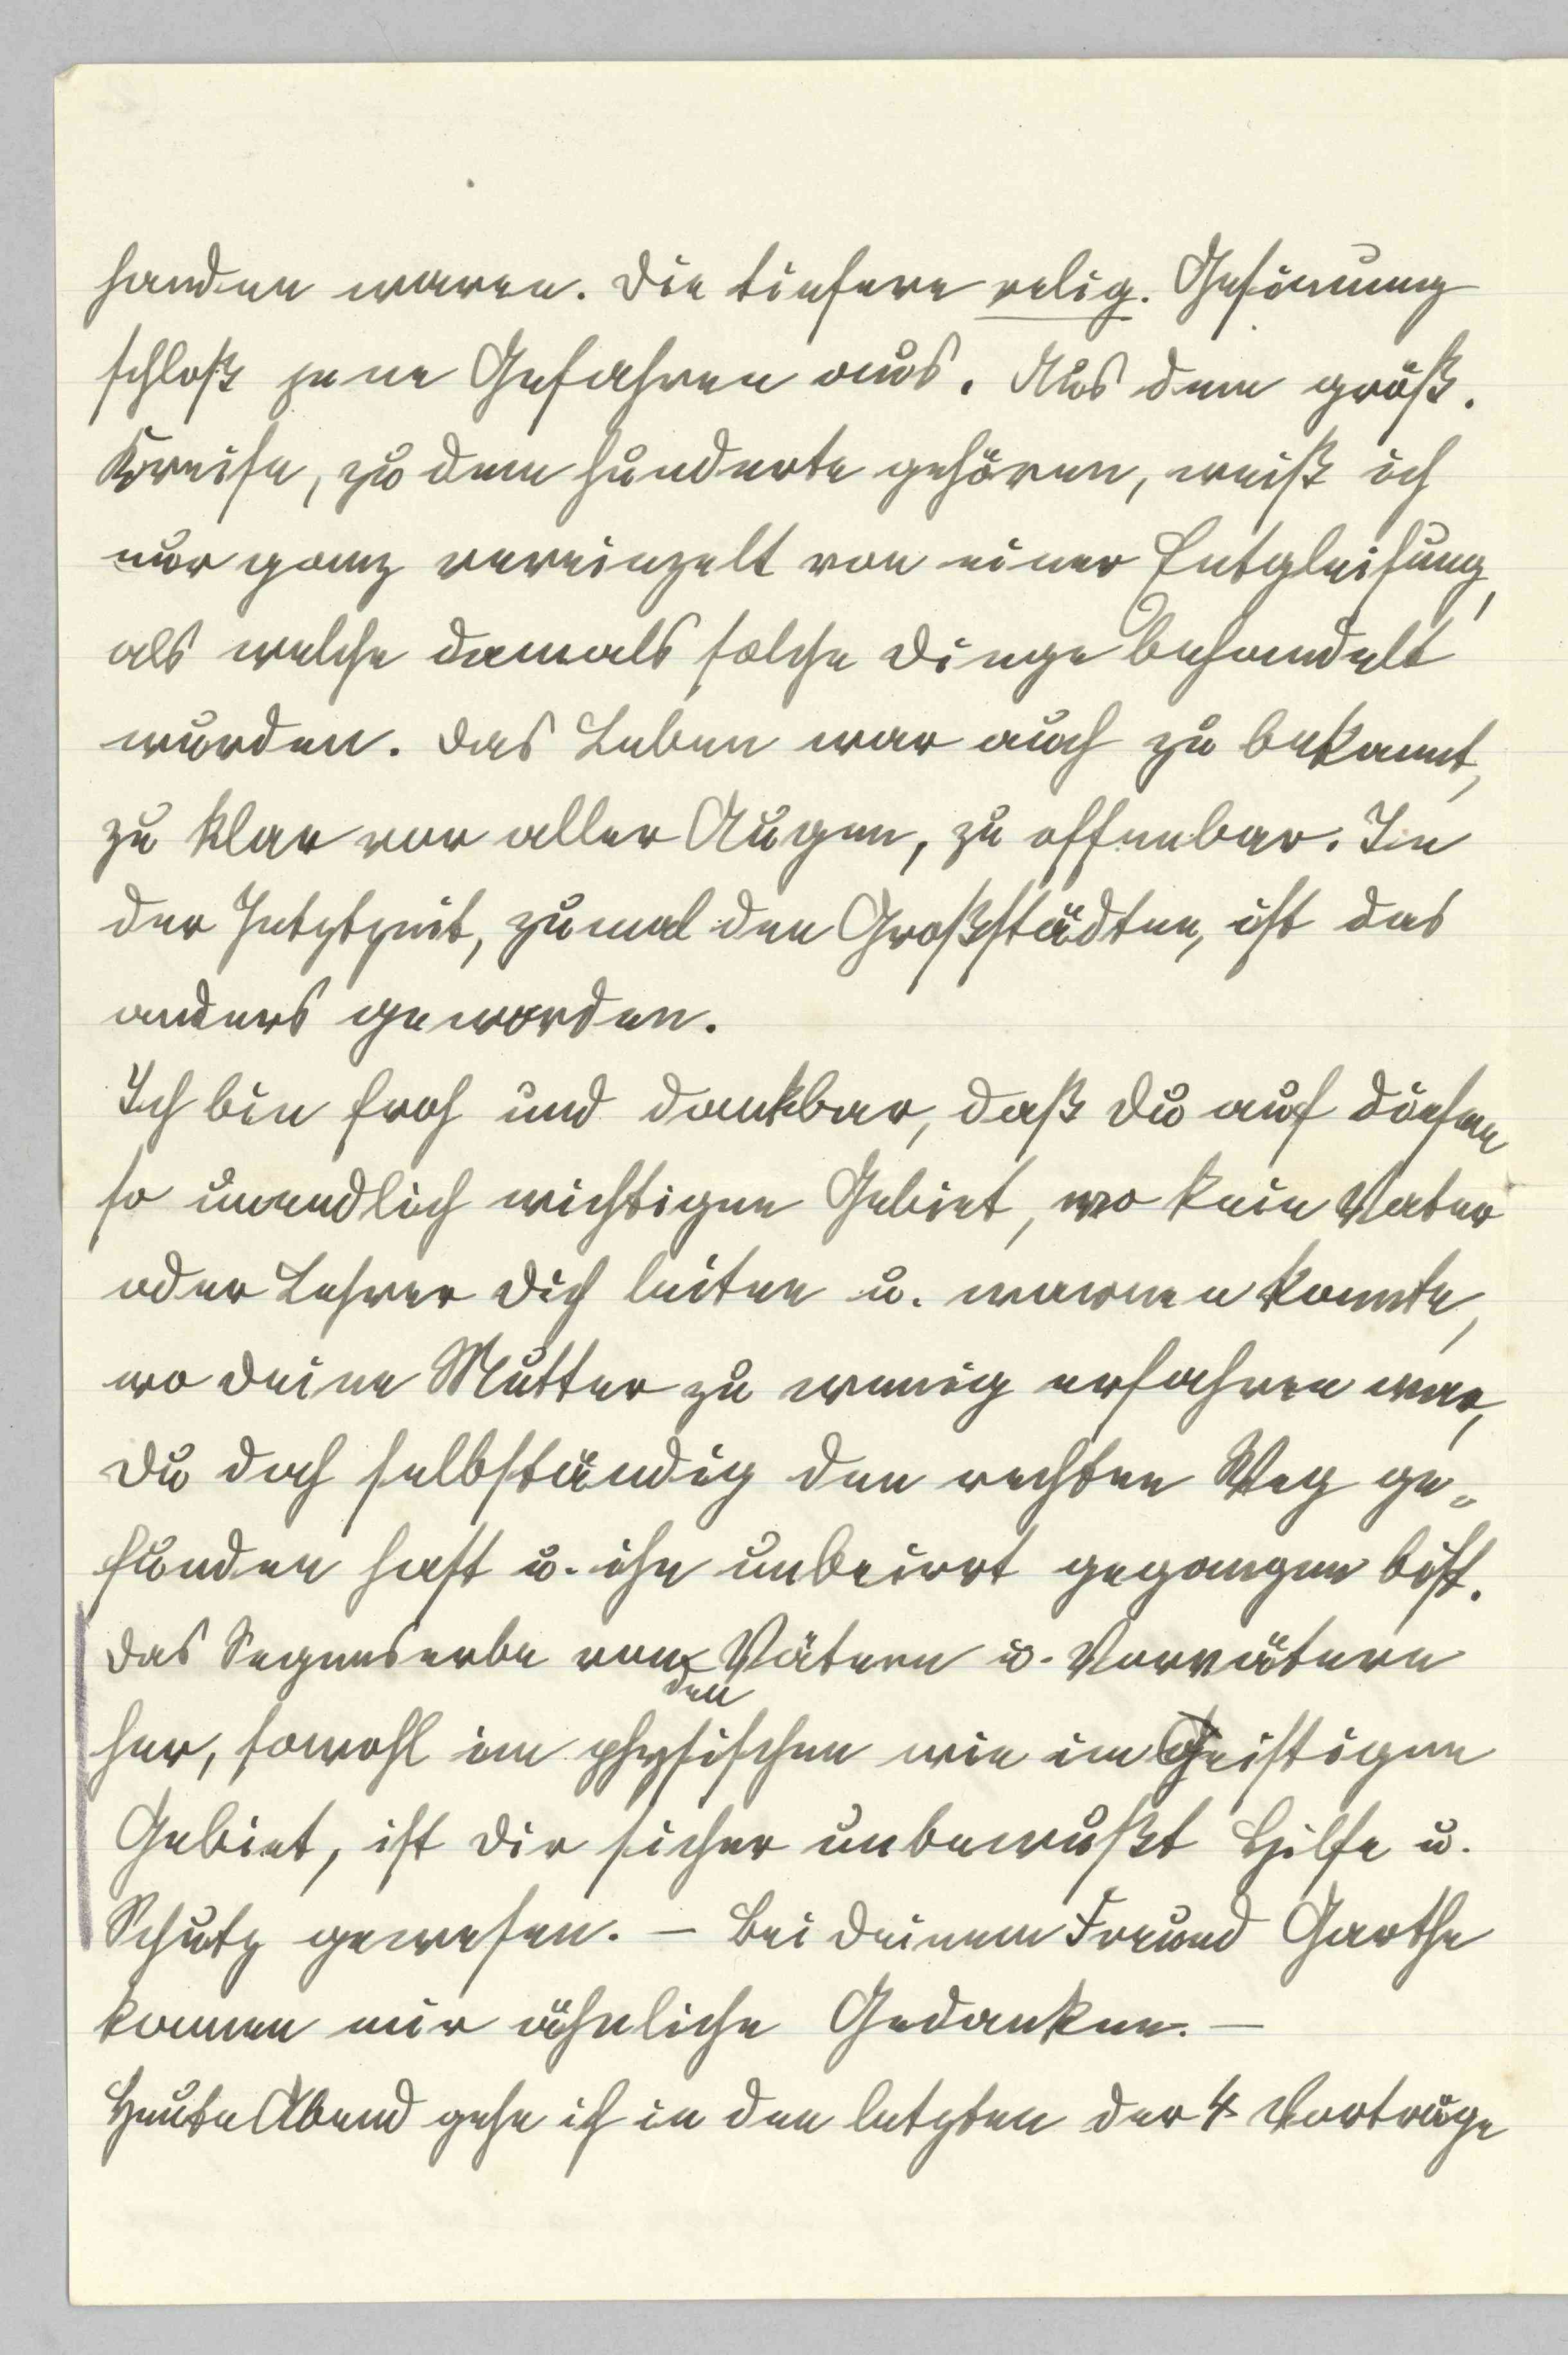 handen waren. Die tiefere relig. Gesinnung
schloß jene Gefahren aus. Aus dem größ.
Kreise, zu dem hunderte gehören, weiß ich
nur ganz vereinzelt von einer Entgleisung,
als welche damals solche Dinge behandelt
wurden. Das Leben war auch zu bekannt,
zu klar vor aller Augen, zu offenbar. In
der Jetztzeit, zumal den Großstädten, ist das
anders geworden.
Ich bin froh und dankbar, daß Du auf diesem
so unendlich wichtigen Gebiet, wo kein Vater
oder Lehrer Dich leiten u. warnen konnte,
wo Deine Mutter zu wenig erfahren war,
Du doch selbständig den rechten Weg ge-
funden hast u. ihn unbeirrt gegangen bist.
Das Segenserbe von den Vätern u. Vorvätern
her, sowohl im physischen wie im Geistigen
Gebiet, ist Dir sicher unbewußt Hilfe u.
Schutz gewesen. – Bei Deinem Freund Garthe
kommen mir ähnliche Gedanken. –
Heute Abend gehe ich in den letzten der 4 Vorträge